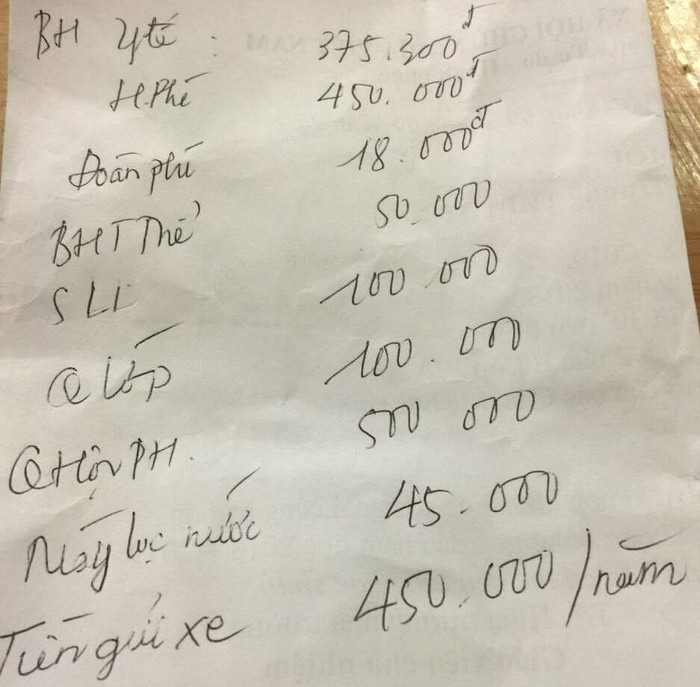 BH Ytế : 375.300đ
H.Phí 450.000đ
Đoàn phí 18.000đ
BHTThể 50.000
SLL 100.000
Q Lớp 100.000
Q Hội PH. 500 000
Máy lọc nước 45.000
Tiền gửi xe 450.000/năm